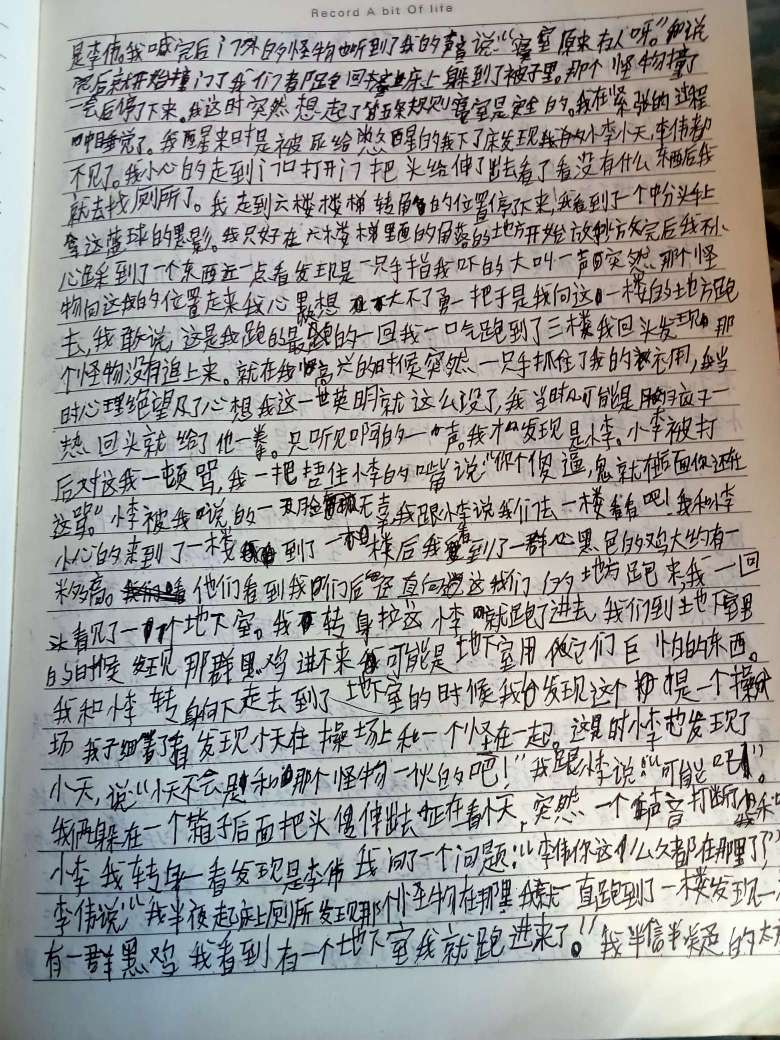 Record A bit Of life
是李伟。我喊完后门外的怪物也听到了我的声音说“寝室原来有人呀。”和说
完后就开始撞门了我们都回去床上躲到了被子里。那个怪物撞了
一会后停了下来。我这时突然想起了第五条规则寝室是安全的。我在紧张的过程
中睡觉了。我醒来时是被尿给憋醒的我下了床发现小李小天,李伟都
不见了。我小心的走到门口打开门把头给伸了出去看了看没有什么东西后我
就去找厕所了。我走到六楼楼梯转角的位置停下来,我看到了一个中分头手上
拿这蓝球的黑影。我只好在六楼楼梯里面的角落的地方开始放秒放完后我不小
心踩到了一个东西近一点看发现是一只手指我吓的大叫一声突然那个怪
物向这我的位置走来我心里想大不了勇一把于是我向这一楼的地方跑
去,我敢说这是我跑的最跑的一回我一口气跑到了三楼我回头发现那
个怪物没有追上来。就在我高兴的时候突然一只手抓住了我的衣用,我当
时心理绝望及了心想我这一世英明就这么没了,我当时可能是脑子一
热回头就给了他一拳。只听见叩的一声。我才发现是小李。小李被打
后对这我一顿骂,我一把捂住小李的嘴说“你个傻逼,鬼就在后面你还在
这骂”小李被我说的一脸无辜,我跟小李说我们去一楼看看吧!我和小李
小心的来到了一楼到了一楼后我看到了一群黑色的鸡大约有一
米多高。他们看到我们后径直向这我们的地方跑来,我一回
头看见了一个地下室。我转身拉这小李就跑了进去,我们到土地下室里
的的时候发现那群黑鸡进不来可能是地下室用他它们巨怕的东西。
我和小李转身向下走去到了地下室的时候我们发现这个是一个操
场我子细看了看发现小天在操场上和一个怪在一起。这是时小李也发现了
小天,说“小天不会是和那个怪物一伙的吧!”我跟小李说“可能吧!”。
我俩躲在一个箱子后面把头偿伸出去正在看小天,突然一个声音打断了我和
小李我转身一看发现是李伟我问了一个问题:“李伟你这么久都在那里了?”
李伟说“我半夜起床上厕所发现那个怪物在那里我就一直跑到了一楼发现一
有一群黑鸡我看到有一个地下室我就跑进来了。”我半信半疑的